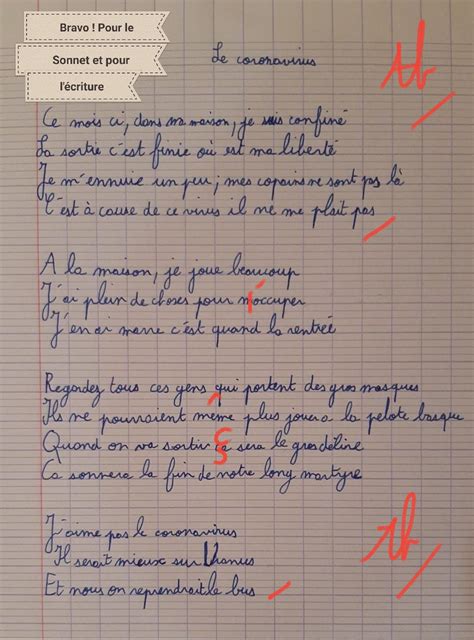 Bravo ! Pour le
Sonnet et pour
l'écriture
Le coronavirus
Tb
Ce mois ci, dans ma maison, je suis confiné
La sortie c'est finie où est ma liberté
Je m'ennuie un peu ; mes copains ne sont pas là
C'est à cause de ce virus il ne me plait pas
A la maison, je joue beaucoup
J'ai plein de choses pour m'occuper
J'en ai marre c'est quand la rentrée
Regardez tous ces gens qui portent des gros masques
Ils ne pourraient même plus jouer a la pelote basque
Quand on va sortir ça sera le gros délire
Ca sonnera la fin de notre long martyre
J'aime pas le coronavirus
Tb
Il serait mieux sur Uranus
Et nous on reprendrait le bus